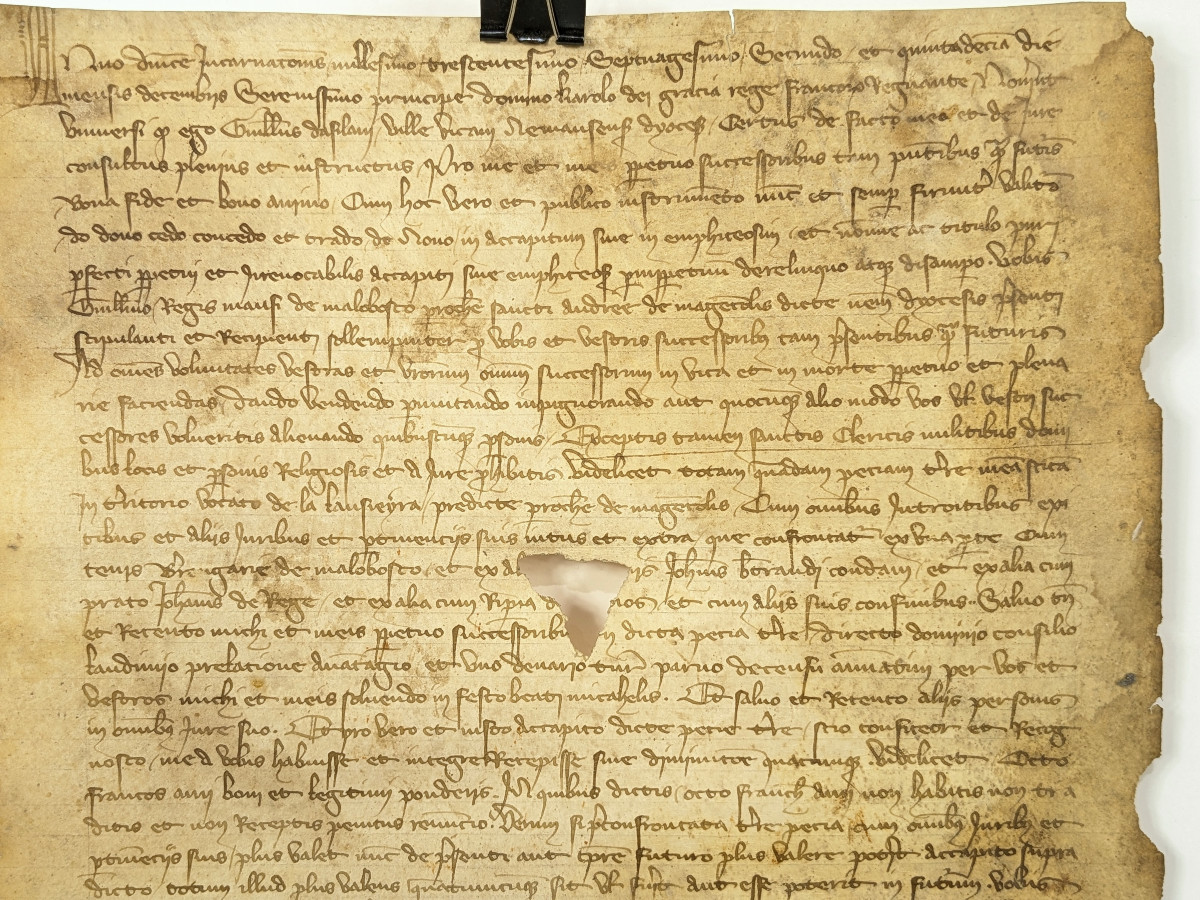 Anno dnice Incarnatonis millesimo trescentesimo Septuagesimo Secundo et quintadecia die
mensis decembris Serenissimo principe domino karolo dei gracia rege francorum Regnante Noverint
Universi q ego Guillms ville Nemausens dyoces Certus de facto meo et de Jure
consultus plenius et instructus Pro me et meis ppetuo successoribus tam pntibus q futuris
bona fide et bono animo Cum hoc vero et publico instrumeto nuc et semp firmit valituro
do dono cedo concedo et trado de Novo in accapitum sive in emphiteosim et nomine ac titulo puri
pfecti ppetui et Irrevocabilis accapiti sive emphiteos derelinquo atq desampo Vobis
Guillmo Regis mansi de malobosco proche sancti andree de magecolis dicte nem dyocesis psenti
stipulanti et Recipienti sollempniter p vobis et vestris successoribus tam psentibus q futuris
Ad omes voluntates vestras et vrorum omium successorum in vita et in morte ppetuo et plena
rie faciendas dando vendendo pmutando inpignorando aut quocumq alio modo vos vl vestri suc
cessores volueritis alienando quibuscumq psonis Exceptis tamen sanctis Clericis militibus domi
bus locis et psonis Religiosis et a Jure phibitis videlicet totam quadam peciam tre mea sitam
In tritorio vocato de la lausieyra predicte proche de magecolis Cum omibus Introitibus exi
tibus et aliis Iuribus et ptinenciis suis intus et extra que confrontat ex una pte Cum
terris Brengarie de malobosco et ex al ris Johanis btrandi condam et ex alia cum
prato Johanis de Rege et ex alia cum Ripia et cum aliis suis confinibus Salvo tn
et Retento michi et meis ppetuo successoribus in dicta pecia tre directo dominio consilio
laudimio prelatione avatagio et uno denario tur parvo de censu annuatim per vos et
vestros michi et meis solvendo in festo beati micahelis Et salvo et Retento aliis personis
in omibus Jure suo Et pro vero et iusto accapito dicte pecie tre confiteor et Recog
nosco me a vobis habuisse et integre Recepisse sine diminutoe quacumq videlicet Octo
francos auri boni et legitimi ponderis In quibus dictis octo franch auri non habitis non tra
ditis et non Receptis penitus renuncio Verum si pconfrontata tre pecia cum omibus Iuribus et
ptineciis suis plus valet nuc de psenti aut tpre futuro plus valere potit accapito supra
dicto totum illud plus valens quatumcuq sit vl fuit aut esse poterit in futurum vobis